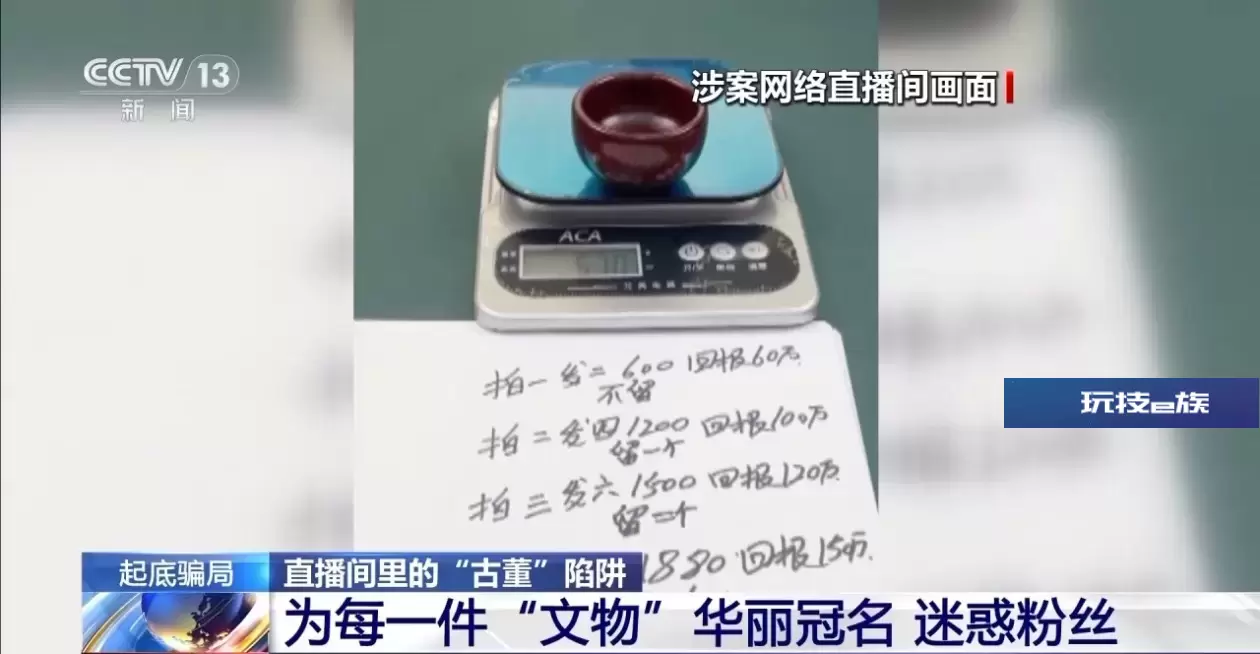 CCTV 13
新闻
涉案网络直播间画面
ACA
拍一发二600 回报60万
不留
拍二发四1200 回报100万
留一个
拍三发六1500 回报120万
留二个
1880 回报150万
玩技e族
起底骗局
直播间里的“古董”陷阱
为每一件“文物”华丽冠名 迷惑粉丝